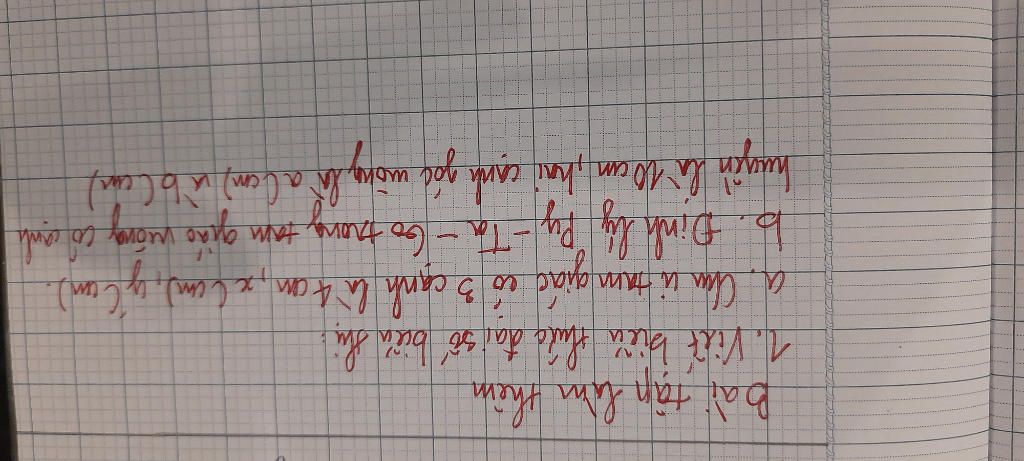 Bài tập làm thêm
1. Viết biểu thức đại số biểu thị:
a. Chu vi tam giác có 3 cạnh là 4 cm, x (cm), y (cm).
b. Định lý Py - Ta - Go trong tam giác vuông có cạnh
huyền là 10 cm, hai cạnh góc vuông là a (cm) và b (cm)